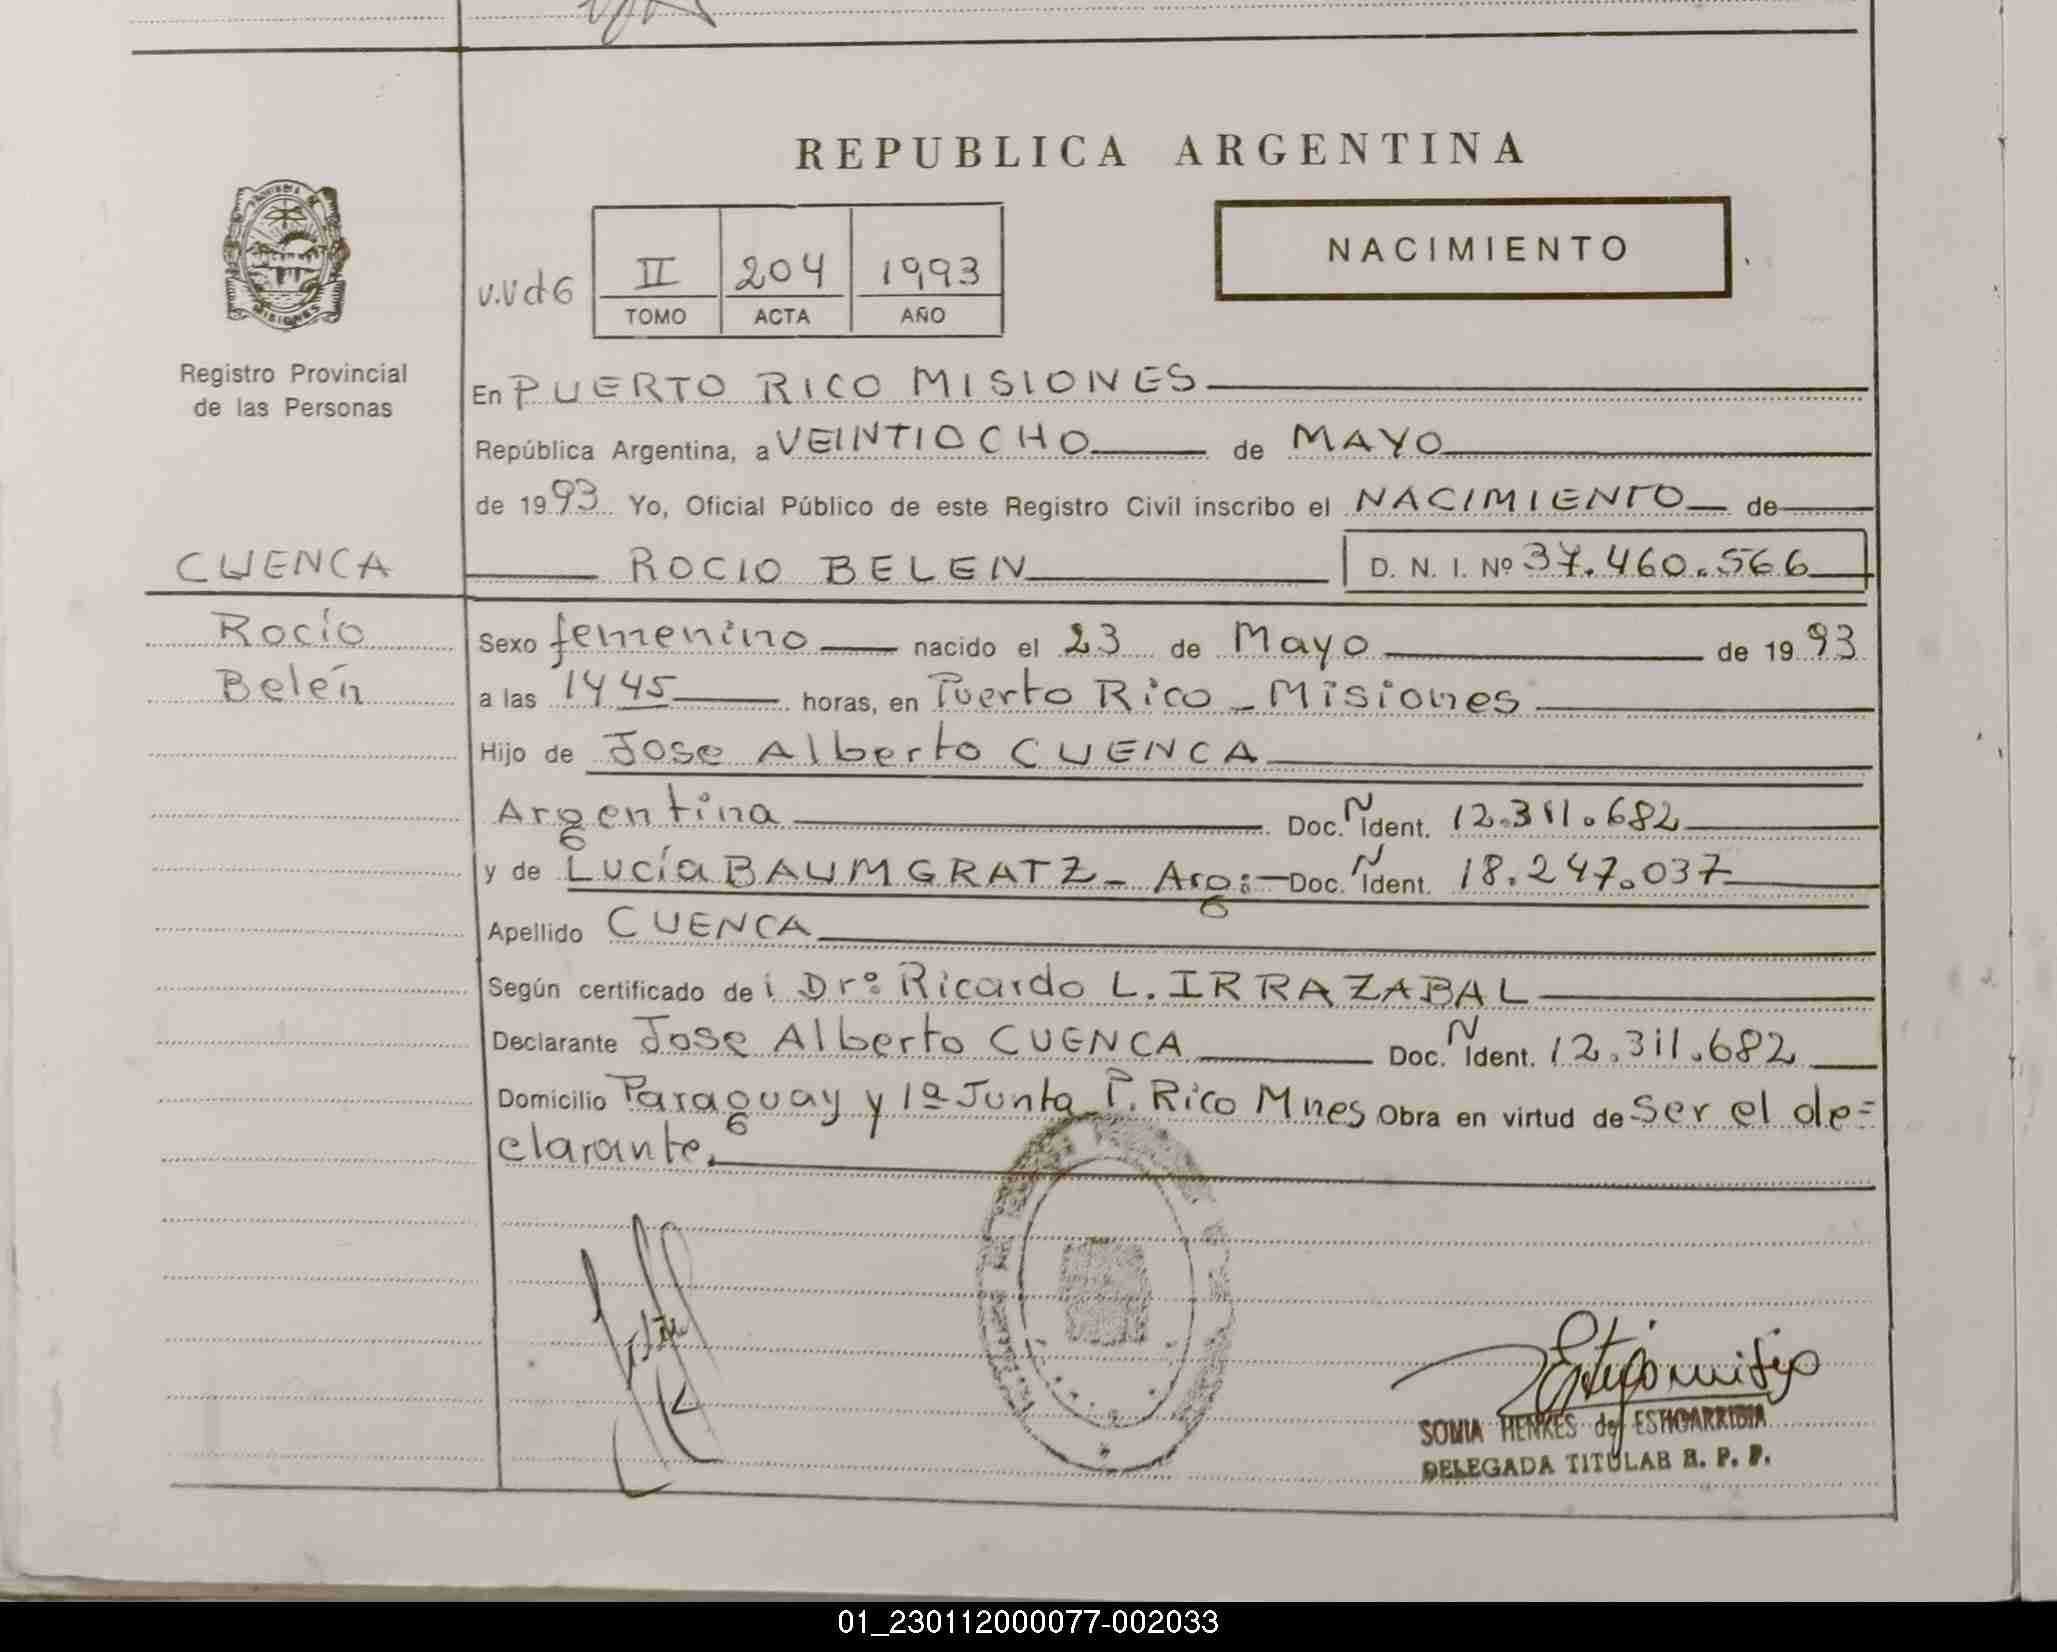 REPUBLICA ARGENTINA
PROVINCIA DE MISIONES
Registro Provincial
de las Personas
NACIMIENTO
v.Vd6 II 204 1993
TOMO ACTA AÑO
En PUERTO RICO MISIONES
República Argentina, a VEINTIOCHO de MAYO
de 1993 Yo, Oficial Público de este Registro Civil inscribo el NACIMIENTO de
CUENCA ROCIO BELEN D. N. I. Nº 37.460.566
Rocío
Belén
Sexo femenino nacido el 23 de Mayo de 1993
a las 1445 horas, en Puerto Rico - Misiones
Hijo de Jose Alberto CUENCA
Argentina Doc. N Ident. 12.311.682
y de Lucía BAUMGRATZ - Arg: Doc. N Ident. 18.247.037
Apellido CUENCA
Según certificado de: Dr: Ricardo L. IRRAZABAL
Declarante Jose Alberto CUENCA Doc. N Ident. 12.311.682
Domicilio Paraguay y 1ª Junta P. Rico Mnes Obra en virtud de Ser el de=
clarante.
SONIA HENKES de ESTIGARRIBIA
DELEGADA TITULAR R. P. P.
01_230112000077-002033